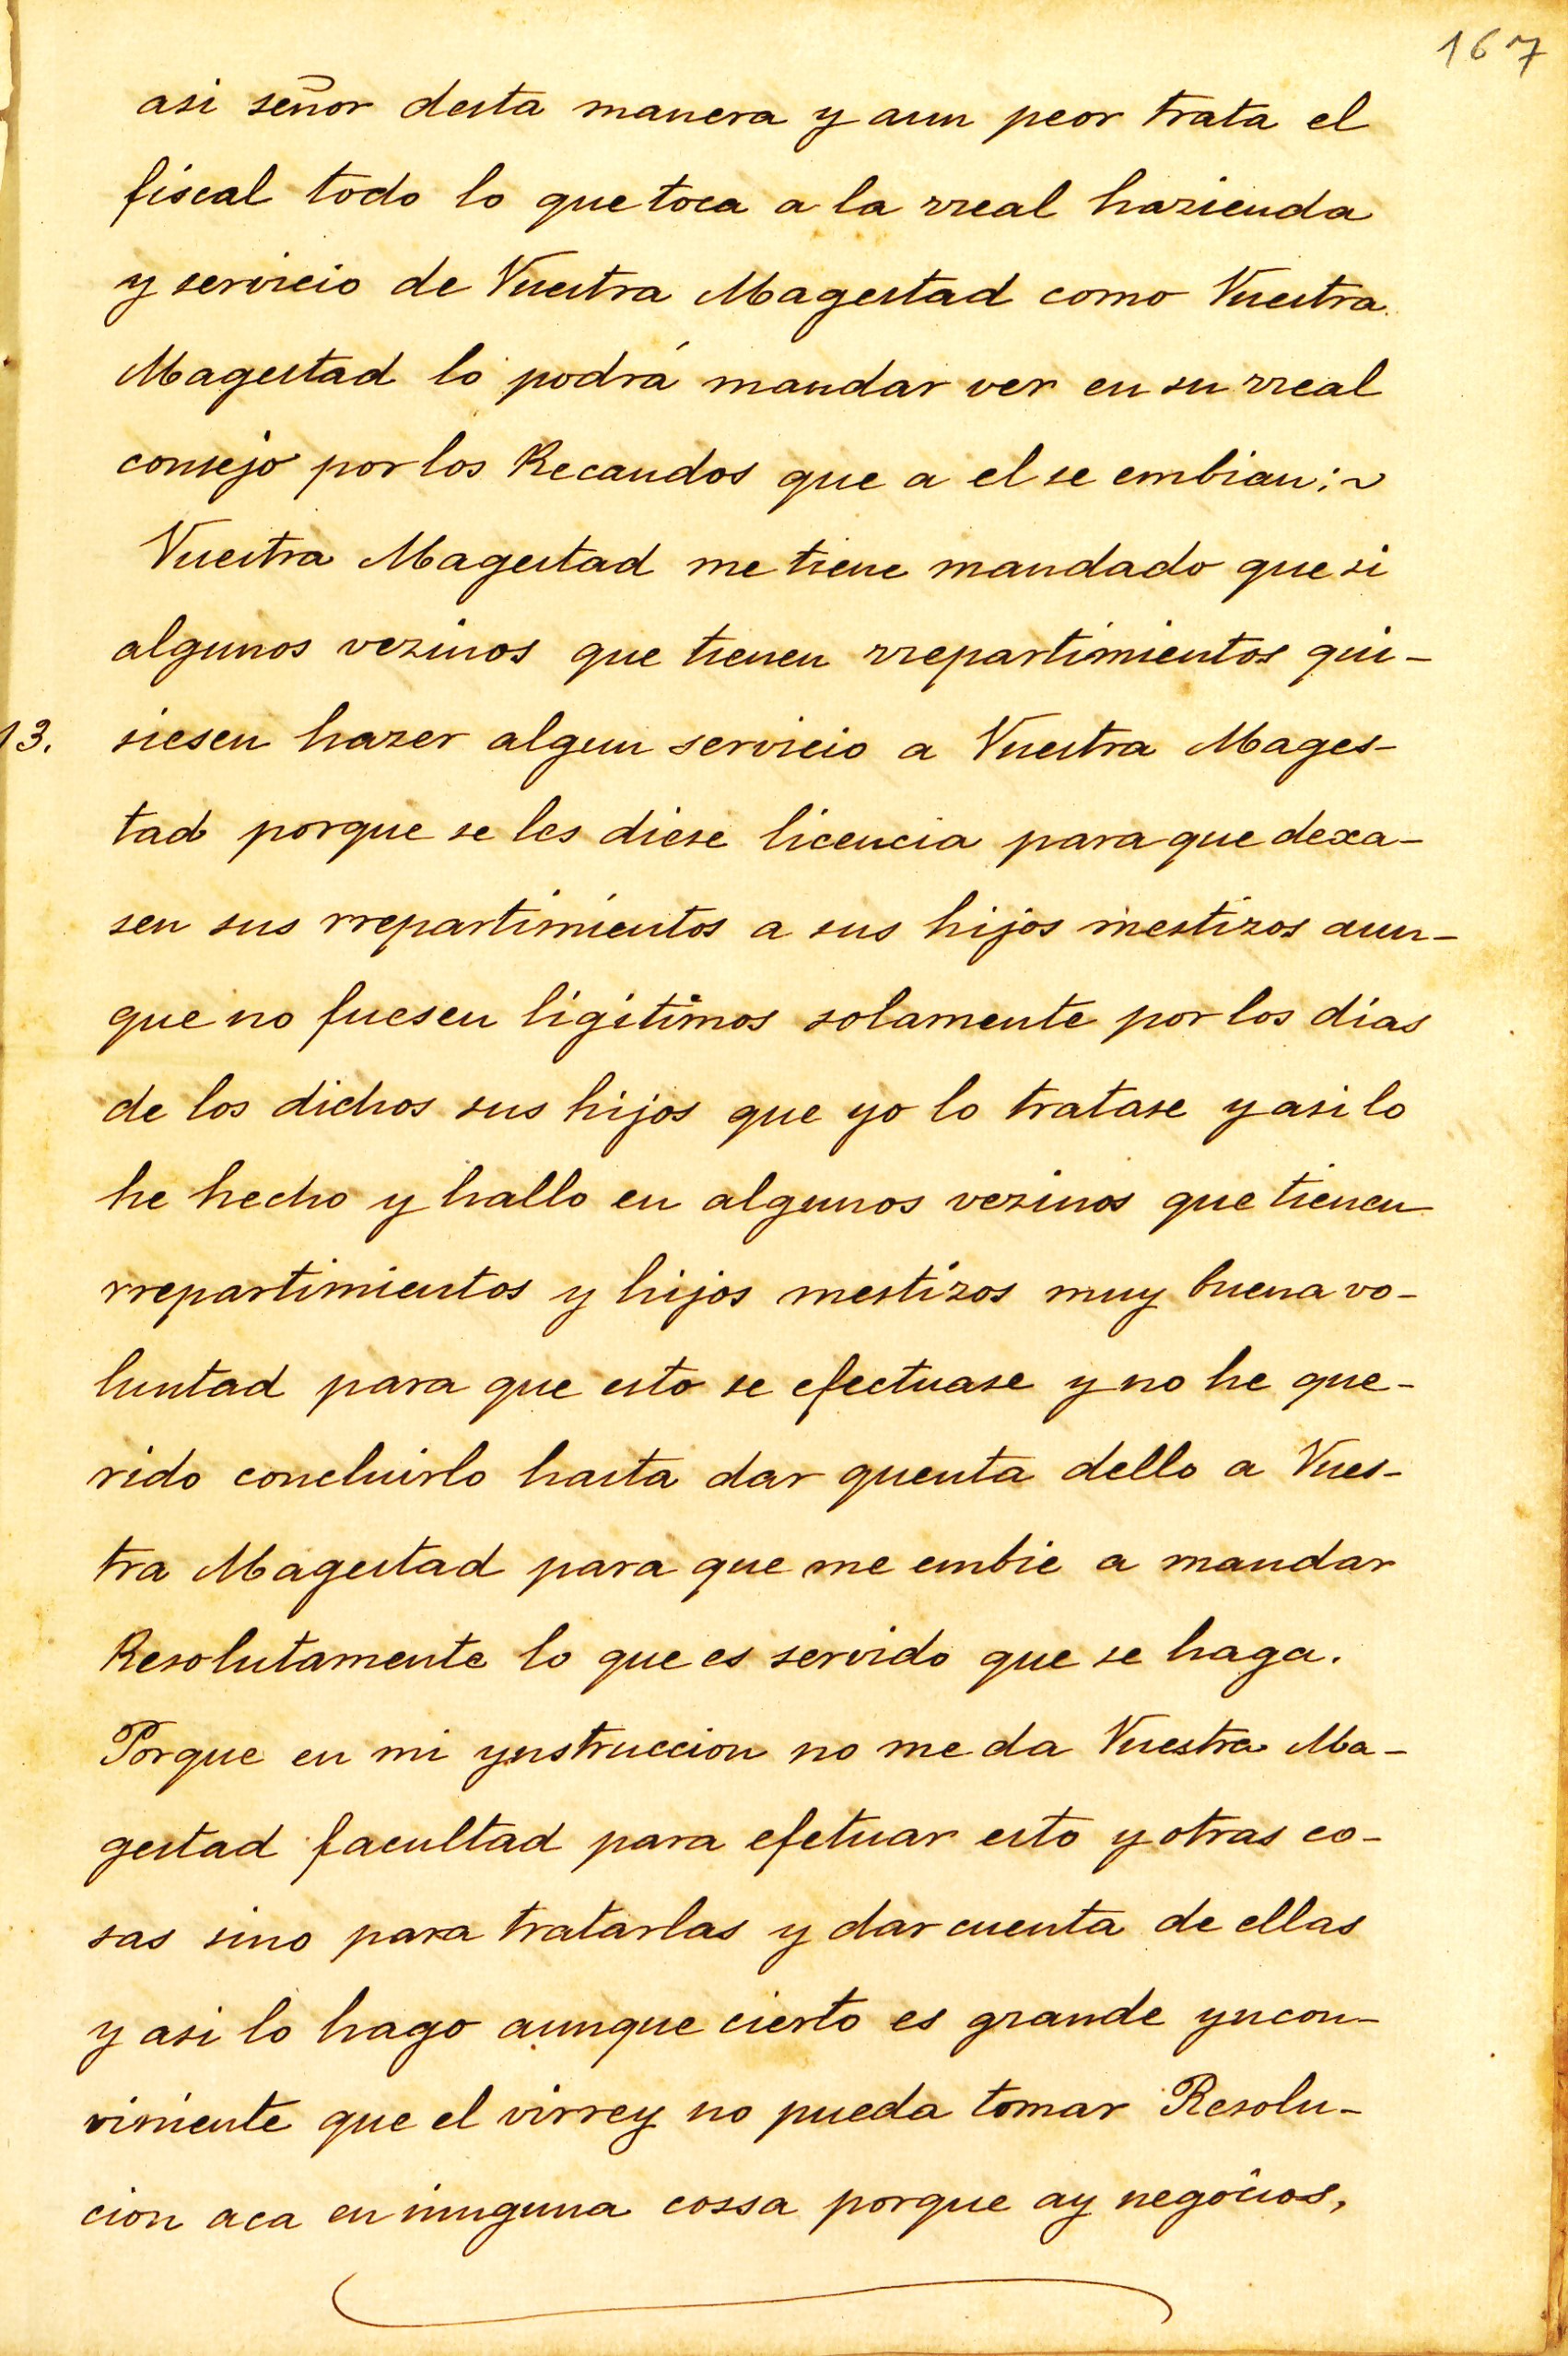 167
asi señor desta manera y aun peor trata el
fiscal todo lo que toca a la rreal hazienda
y servicio de Vuestra Magestad como Vuestra
Magestad lo podrá mandar ver en su rreal
consejo por los Recaudos que a el se embian:~
Vuestra Magestad me tiene mandado que si
algunos vezinos que tienen rrepartimientos qui-
13. siesen hazer algun servicio a Vuestra Mages-
tad porque se les diese licencia para que dexa-
sen sus rrepartimientos a sus hijos mestizos aun-
que no fuesen ligitimos solamente por los dias
de los dichos sus hijos que yo lo tratase y asi lo
he hecho y hallo en algunos vezinos que tienen
rrepartimientos y hijos mestizos muy buena vo-
luntad para que esto se efectuase y no he que-
rido concluirlo hasta dar quenta dello a Vues-
tra Magestad para que me embie a mandar
Resolutamente lo que es servido que se haga.
Porque en mi ynstruccion no me da Vuestra Ma-
gestad facultad para efetuar esto y otras co-
sas sino para tratarlas y dar cuenta de ellas
y asi lo hago aunque cierto es grande yncon-
viniente que el virrey no pueda tomar Resolu-
cion aca en ninguna cossa porque ay negocios,